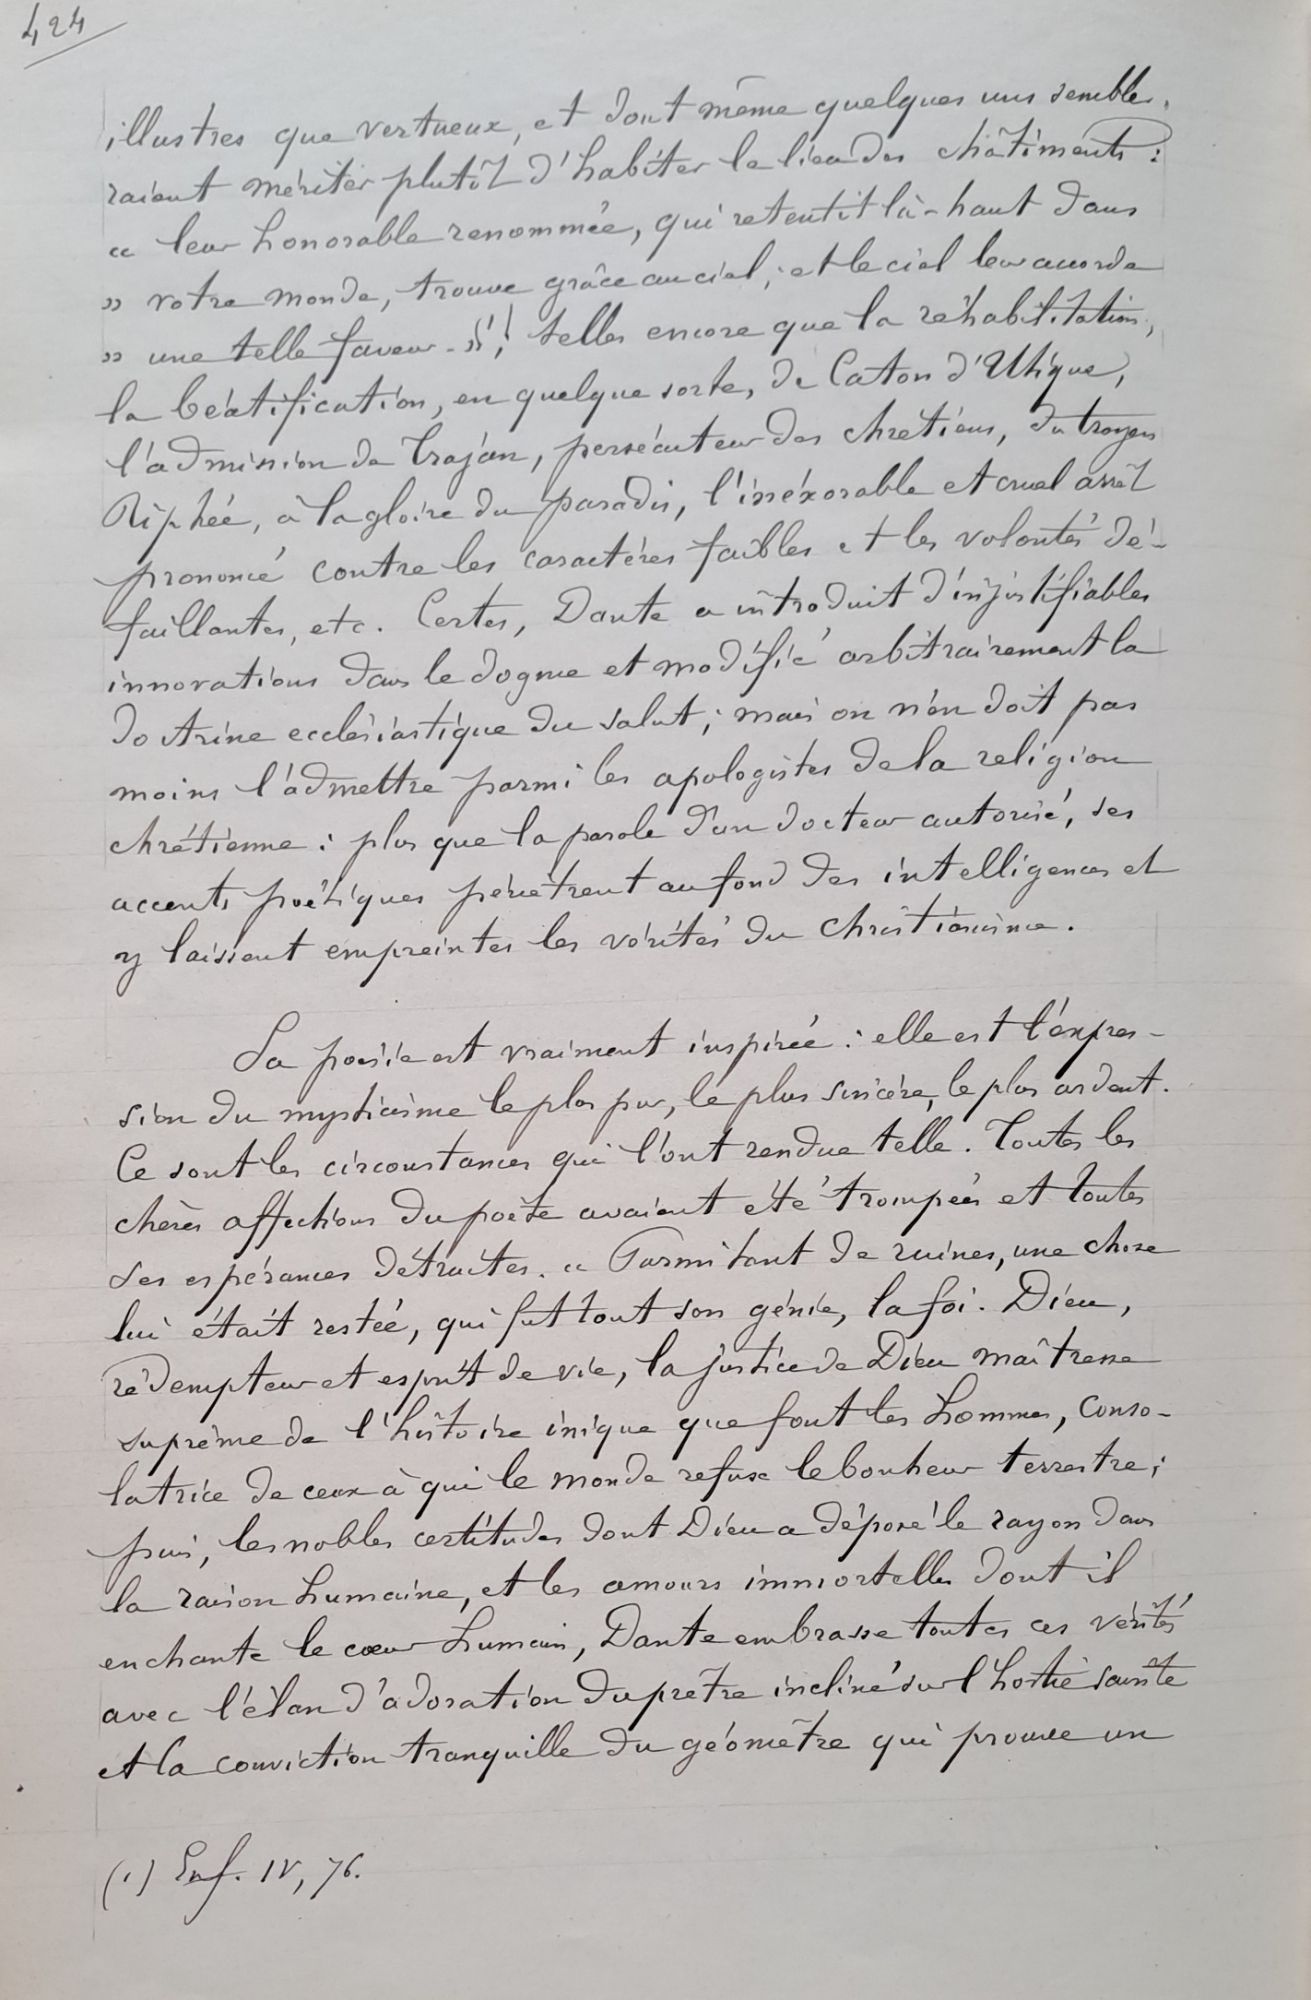 424
illustres que vertueux, et dont même quelques uns semble-
raient mériter plutôt d'habiter le lieu des châtiments :
« leur honorable renommée, qui retentit là-haut dans
» votre monde, trouve grâce au ciel, et le ciel leur accorde
» une telle faveur - » ; telles encore que la réhabilitation,
la béatification, en quelque sorte, de Caton d'Utique,
l'admission de Trajan, persécuteur des chrétiens, du troyen
Riphée, à la gloire du paradis, l'inéxorable et cruel arrêt
prononcé contre les caractères faibles et les volontés dé-
faillantes, etc. Certes, Dante a introduit d'injustifiables
innovations dans le dogme et modifié arbitrairement la
doctrine ecclésiastique du salut ; mais on n'en doit pas
moins l'admettre parmi les apologistes de la religion
chrétienne : plus que la parole d'un docteur autorisé, ses
accents poétiques pénètrent au fond des intelligences et
y laissent empreintes les vérités du christianisme.
Sa poésie est vraiment inspirée : elle est l'expres-
sion du mysticisme le plus pur, le plus sincère, le plus ardent.
Ce sont les circonstances qui l'ont rendue telle. Toutes les
chères affections du poète avaient été trompées et toutes
ses espérances détruites. « Parmi tant de ruines, une chose
lui était restée, qui fut tout son génie, la foi. Dieu,
rédempteur et esprit de vie, la justice de Dieu maîtresse
suprême de l'histoire inique que font les hommes, conso-
latrice de ceux à qui le monde refuse le bonheur terrestre ;
puis, les nobles certitudes dont Dieu a déposé le rayon dans
la raison humaine, et les amours immortelles dont il
enchante le cœur humain, Dante embrasse toutes ces vérités
avec l'élan d'adoration du prêtre incliné sur l'hostie sainte
et la conviction tranquille du géomètre qui prouve un
(1) Enf. IV, 76.